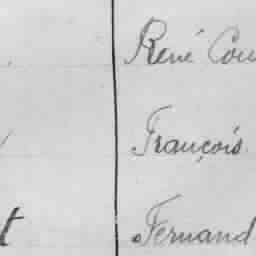 René Cou
François
t Fernand